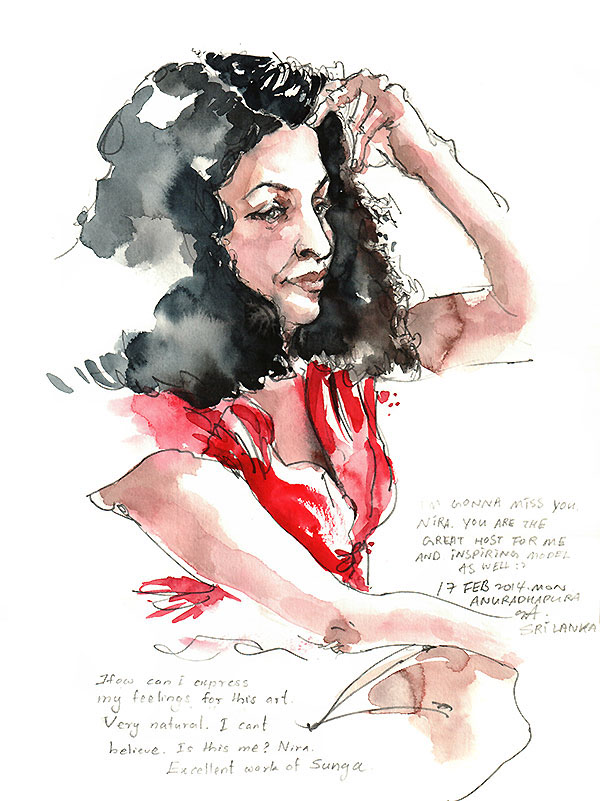 I'M GONNA MISS YOU.
NIRA. YOU ARE THE
GREAT HOST FOR ME
AND INSPIRING MODEL
AS WELL :?
17 FEB 2014. MON
ANURADHAPURA
SRI LANKA
How can i express
my feelings for this art.
Very natural. I cant
believe. Is this me? Nira.
Excellent work of Sunga.